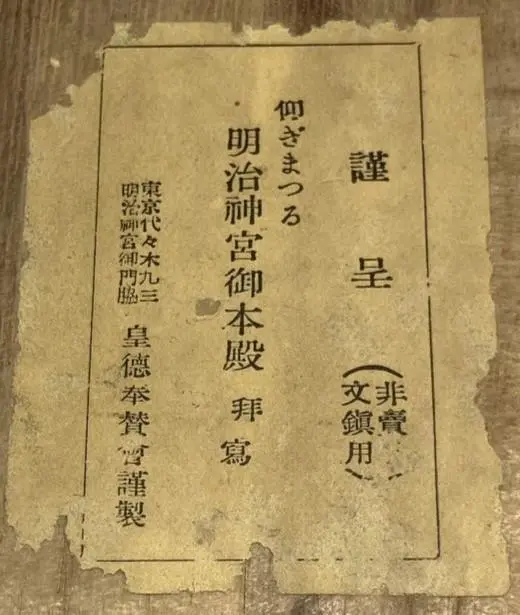 謹呈
(非賣
文鎭用)
仰ぎまつる
明治神宮御本殿 拜寫
東京代々木九三
明治神宮御門脇
皇德奉賛會謹製